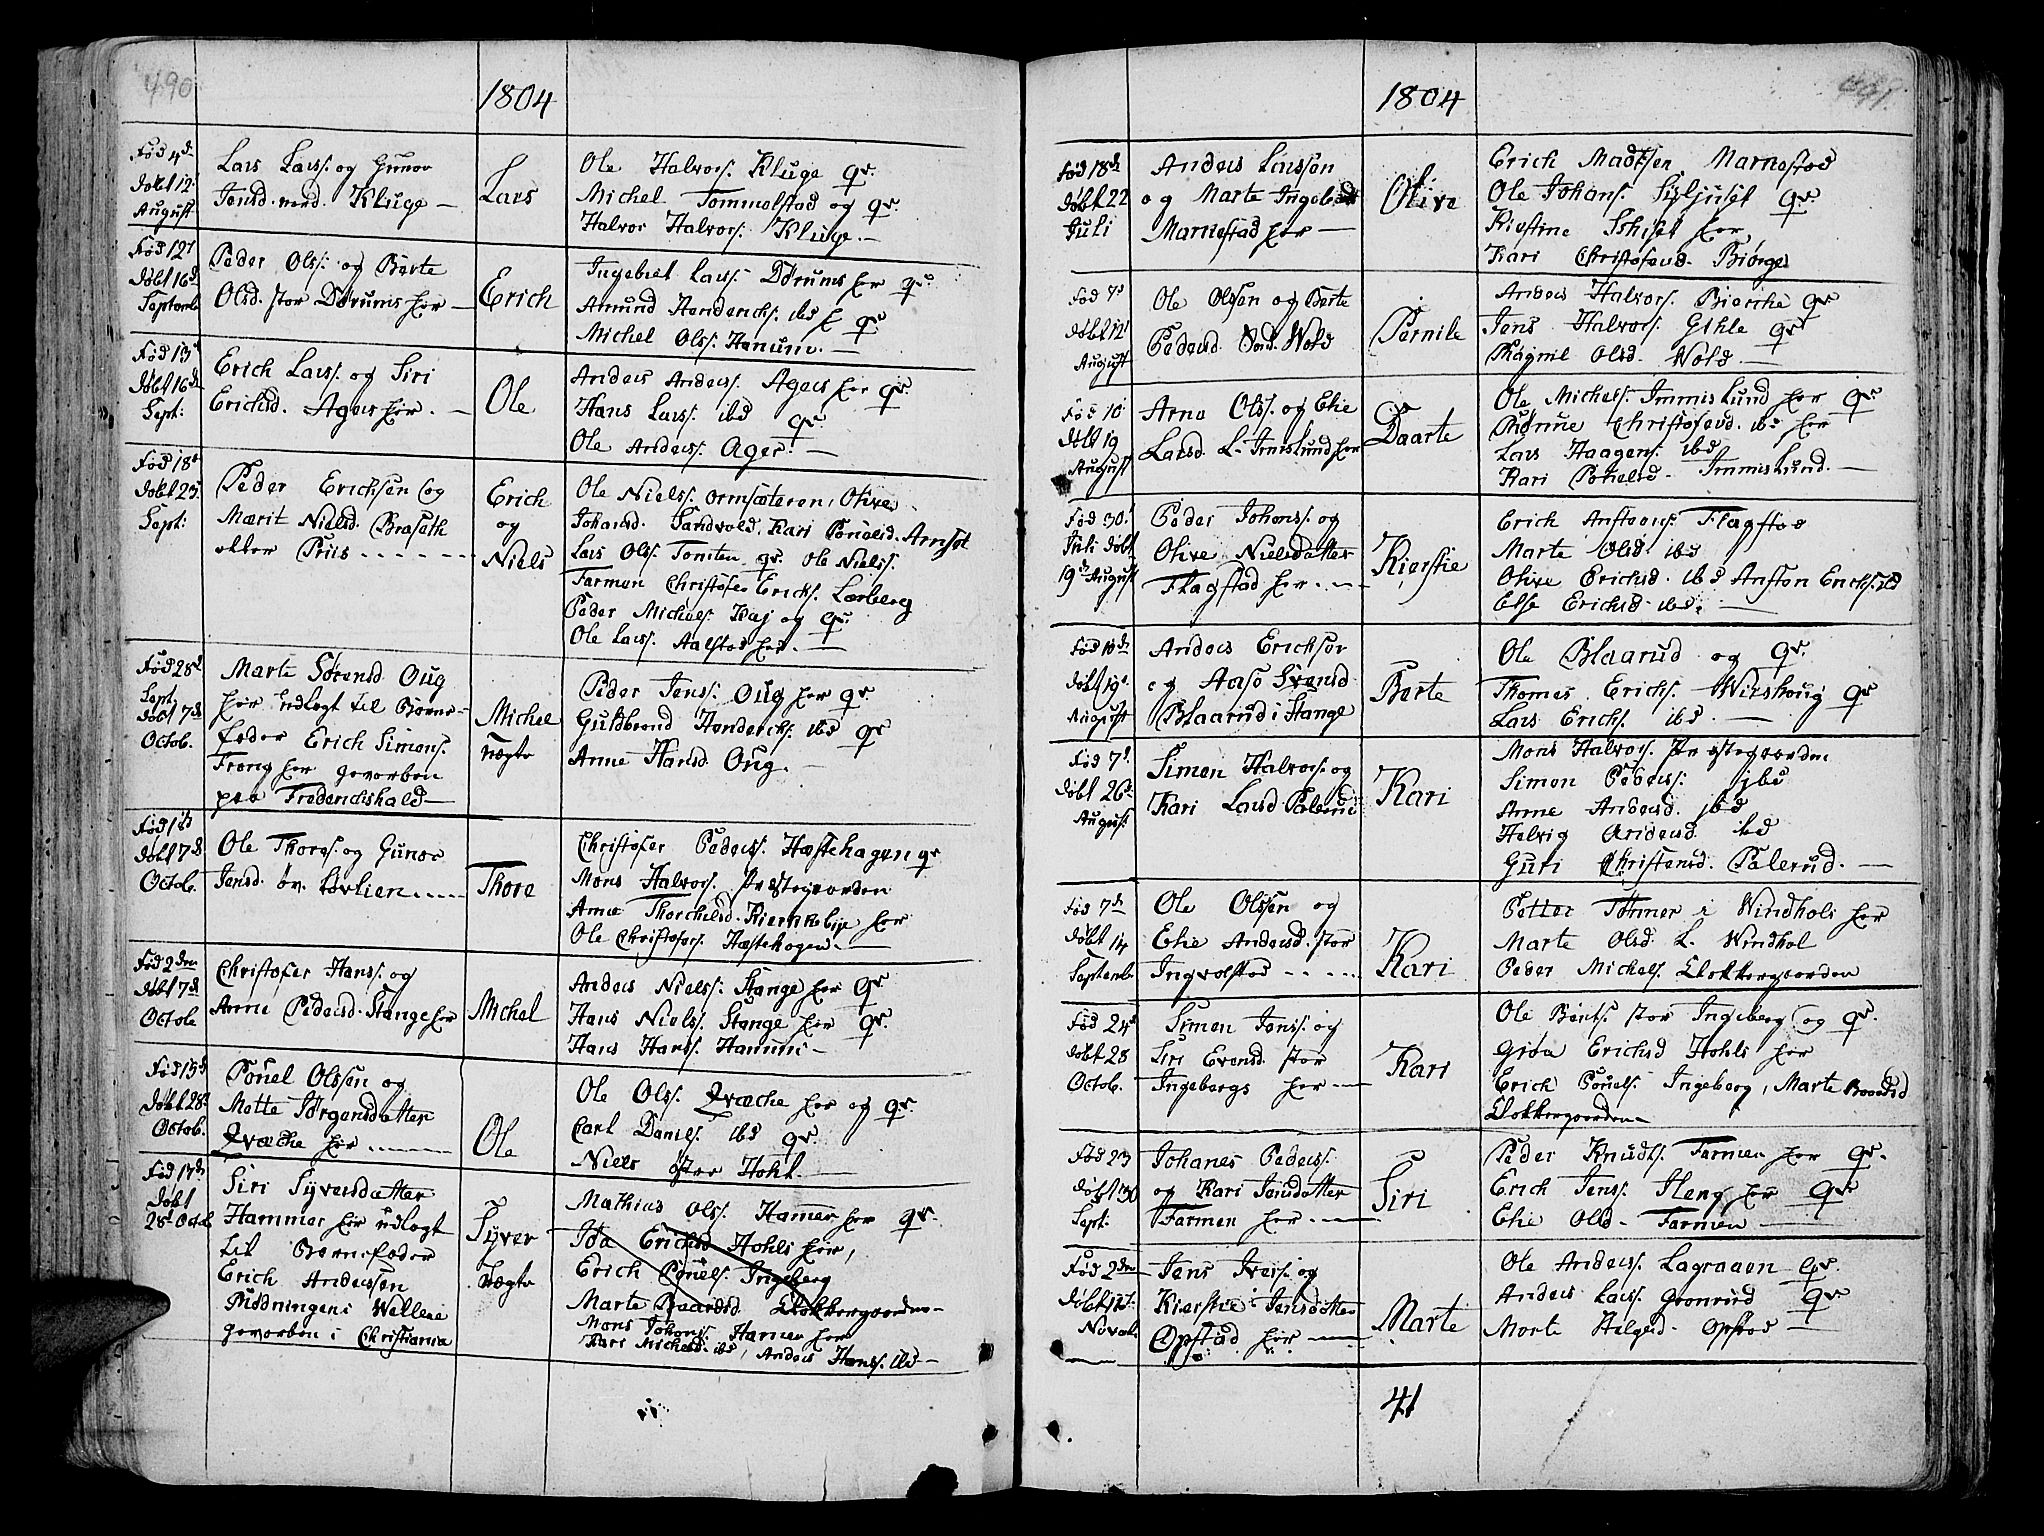 490
1804
Fød 4d
Døbt 12
August
Lars Larss. og Gunor
Jensd. nord. Kluge
Lars
Ole Halvors. Kluge qv.
Michel Tommelstad og qv.
Halvor Halvors. Kluge.
Fød 12
Døbt 16d
Septemb
Peder Olss. og Berte
Olsd. stor Dørums her
Erich
Ingebret Larss Dørums her qv.
Amund Henderichs. ibd qv
Michel Olss. Hanum.
Fød 13
Døbt 16d
Sept:
Erich Larss. og Siri
Erichsd. Ager her.
Ole
Anders Anderss. Agers her qv.
Hans Larss. ibd qv.
Ole Anderss. Ager.
Fød 18
Døbt 23
Sept:
Peder Erichsen og
Marit Nielsd. Braseth
eller Priis
Erich
og
Niels
Ole Nielss. Ormsæteren, Olive
Johansd. Sandvold, Kari Pouelsd. Arnset
Lars Olss. Tomten qv. Ole Nielss.
Farmen Christofer Erichs. Lørberg
Peder Michels. Haj og qv.
Ole Larss. Aalstad her.
Fød 28d
Sept
Døbt 7d
Octob.
Marte Sørensd Oug
her udlagt til Barne-
fader Erich Simons.
Frong her geworben
paa Frederichshald
Michel
uægte
Peder Jenss. Oug her qv
Guldbrand Henderchs. ibd qv
Anne Hansd. Oug.
Fød
Døbt 7d
Octob.
Ole Thores. og Gunor
Jensd. øv. Lovlien
Thore
Christofer Pederss. Hæstehagen qv
Mons Halvors. Præstegaarden
Anne Thorchelsd. Kiernkobje her
Ole Christofers. Hæstehagen.
Fød 2den
Døbt 7d
Octobr
Christofer Hanss. og
Anne Pedersd. Stange her
Michel
Anders Nielss. Stange her qv
Hans Nielss. Stange her qv.
Hans Hanss. Hanum
Fød 13d
Døbt 28d
Octob.
Pouel Olssen og
Mette Jørgensdatter
Qvæche her
Ole
Ole Olss. Qvæche her og qv.
Carl Daniels. ibd qv.
Niels stor Hohl.
Fød 17d
Døbt
28d Octob
Siri Syversdatter
Hammer her udlagt
til Barnefader
Erich Anderssen
Mødningen i Welleie
geworben i Christiania
Syver
uægte
Mathias Olss. Hammer her qv.
Ida Erichsd Hohls her,
Erich Pouels. Ingeberg
Marte Baardsd. Klokkergaarden
Mons Johanss. Hamer her
Kari Michelsd. ibd, Anders Hanss. ibd

491
1804
Fød 18d
Døbt 22
Juli
Anders Larssen
og Marte Ingebretsd
Marnestad her
Olive
Erich Madssen Marnestad
Ole Johans. Syljuset qv.
Kiestine Ishset her
Kari Christofersd. Biørge
Fød 7d
Døbt 12
August
Ole Olssen og Berte
Pedersd. Wold
Pernile
Anders Halvors. Bierche qv
Jens Halvors. Gihle qv
Ragnil Olsd. Wold
Fød 10
Døbt 19
August
Arne Olss. og Elie
Larsd. L. Imislund her
Daarte
Ole Michels. Immislund her qv.
Rønne Christofersd. ibd her
Lars Haagens. ibd
Kari Pouelsd. Immislund.
Fød 30
Juli Døbt
19d August
Peder Johanss. og
Olive Nielsdatter
Flagstad her
Kierstie
Erich Anstens. Flagstad
Marte Olsd ibd
Olive Erichsd. ibd Ansten Erichs. ibd
Else Erichsd ibd.
Fød 10d
Døbt 19
August
Anders Erichsen
og Aase Svensd
Blaarud i Stange
Berte
Ole Blaarud og qv.
Thomas Erichs. Wiishoug qv
Lars Erichs. ibd.
Fød 7d
Døbt 26d
August
Simen Halvors. og
Kari Larsd Palerud
Kari
Mons Halvors. Præstegaarden
Simen Pederss. ibd
Anne Andersd. ibd
Helvig Andersd. ibd
Guri Christensd. Palerud.
Fød 7d
Døbt 14
Septemb
Ole Olssen og
Elie Andersd. stor
Ingvolstad
Kari
Petter Tømer i Windhols her
Marte Olsd. L. Windhol
Peder Michels. Klokkergaarden
Fød 24
Døbt 28
Octob.
Simen Jenss. og
Siri Evensd. stor
Ingebergs her
Kari
Ole Bents. stor Ingeberg og qv.
Giøa Erichsd Hohls her
Erich Pouels. Ingeberg, Marte Baardsd
Klokkergaarden
Fød 23
Døbt 30
Sept.
Johanes Pederss.
og Kari Jensdatter
Farmen her
Siri
Peder Knuds. Farmen her qv.
Erich Jenss. Ileng her qv.
Elie Olsd. Farmen
Fød 2den
Døbt 12d
Novab
Jens Iverss. og
Kierstie Jensdatter
Opstad her
Marte
Ole Anderss. Lageraaen qv.
Anders Larss. Grønrud qv
Marte Helgesd. Opstad
41